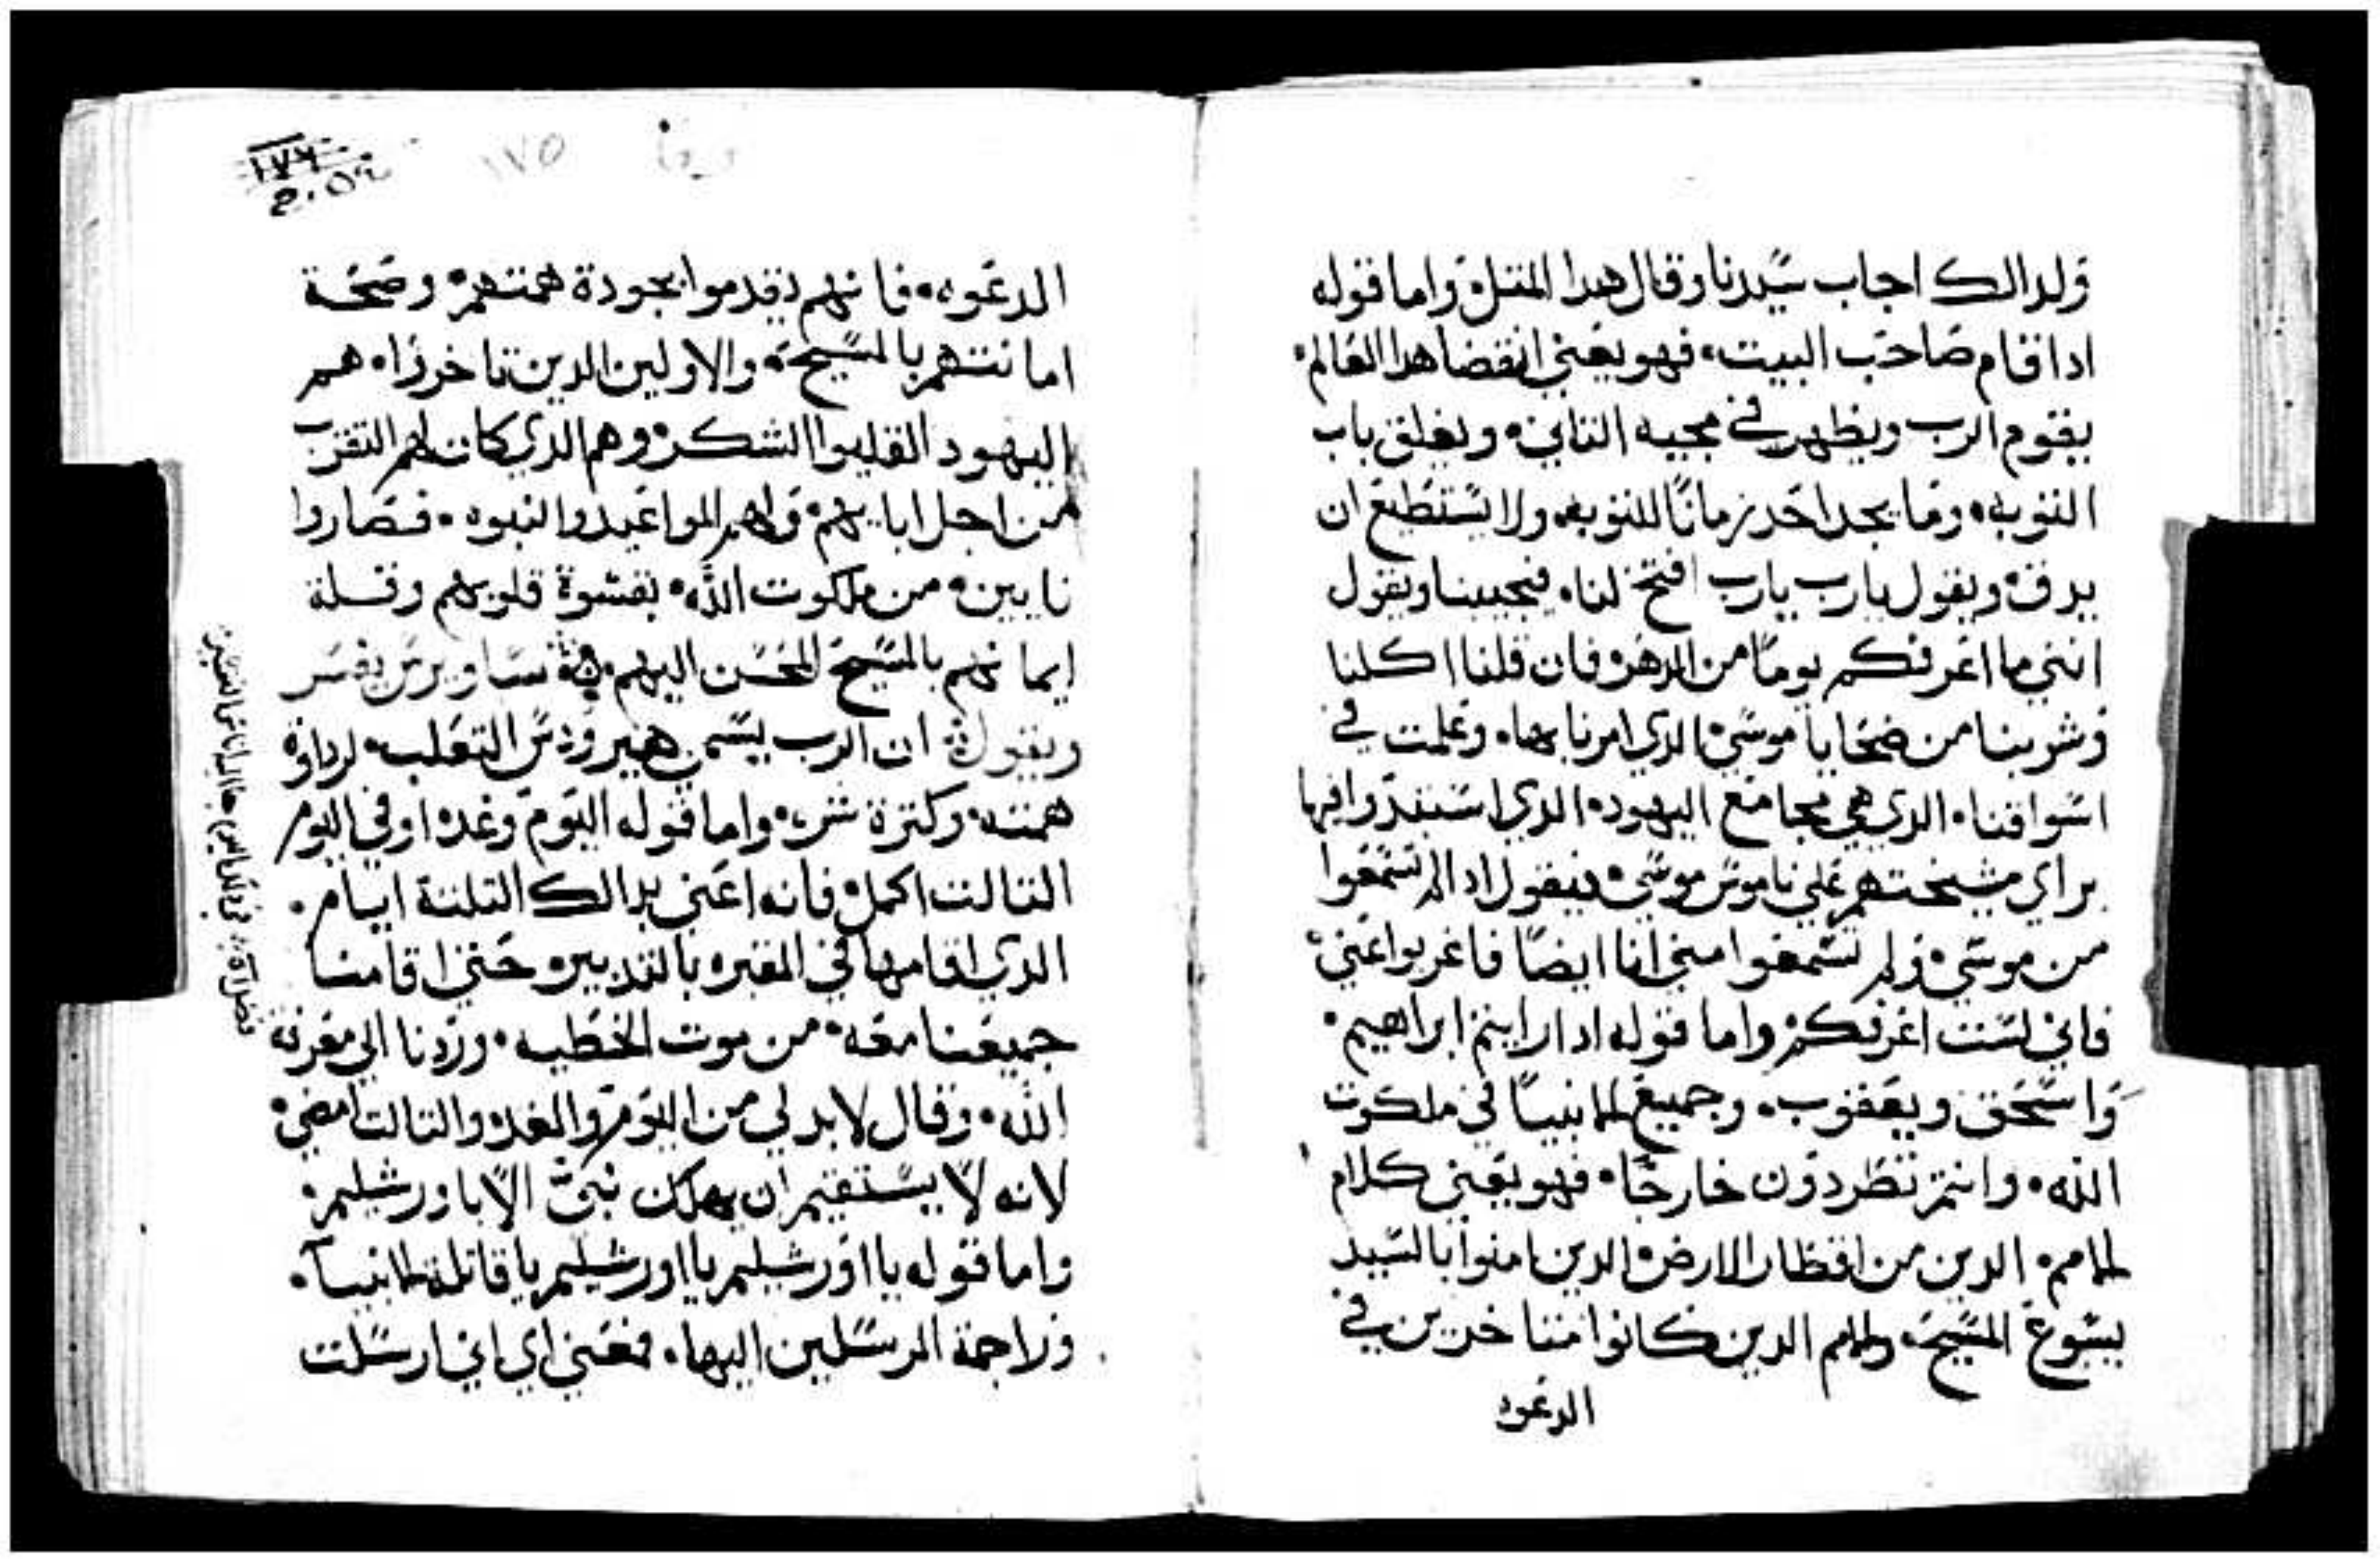 ولدالك اجاب سيدنا وقال هدا المتل واما قوله
ادا قام صاحب البيت فهو يعني انقضا هدا العالم
يقوم الرب ويظهر في مجيه التاني ويغلق باب
التوبه وما يجد احد زمانًا للتوبه ولا يستطيع ان
يدق ويقول يارب يارب افتح لنا فيجيبنا ويقول
انني ما اعرفكم يومًا من الدهر فان قلنا اكلنا
وشربنا من ضحايا موسي الدي امرنا بها وعلمت في
اسواقنا الدي هي مجامع اليهود الدي فيها
براي مشيختهم علي ناموس موسي فيقول ادا لم تسمعوا
من موسي ولم تسمعوا مني انا ايضًا فاغربوا عني
فاني لست اعرفكم واما قوله ادا رايتم ابراهيم
واسحق ويعقوب وجميع الانبيا في ملكوت
الله وانتم تطردون خارجًا فهو يعني كلام
الامم الدين من اقطار الارض الدين امنوا بالسيد
يسوع المسيح والامم الدين كانوا متاخرين في
الدعوه
١٧٥
الدعوه فانهم تقدموا بجودة همتهم وصحة
امانتهم بالمسيح والاولين الدين تاخروا هم
اليهود القليلوا الشكر وهم الدي كان لهم التقرب
من اجل ابايهم ولهم المواعيد والنبوه فصاروا
نايين من ملكوت الله بقسوة قلوبهم وقلة
ايمانهم بالمسيح المحسن اليهم ساويرس يفسر
ويقول ان الرب يسمي هيرودس التعلب لرداوة
همته وكترة شره واما قوله اليوم وغد اوفي اليوم
التالت اكمل فانه اعني بدالك التلتة ايام
الدي اقامها في المقبره بالتدبير حتي اقامنا
جميعنا معه من موت الخطيه وردنا الي معرفة
الله وقال لابد لي من اليوم والغد والتالت امضي
لانه لا يستقيم ان يهلك نبي الا باورشليم
واما قوله يا اورشليم يا اورشليم يا قاتلة الانبيا
وراجمة المرسلين اليها فعني اي اني ارسلت